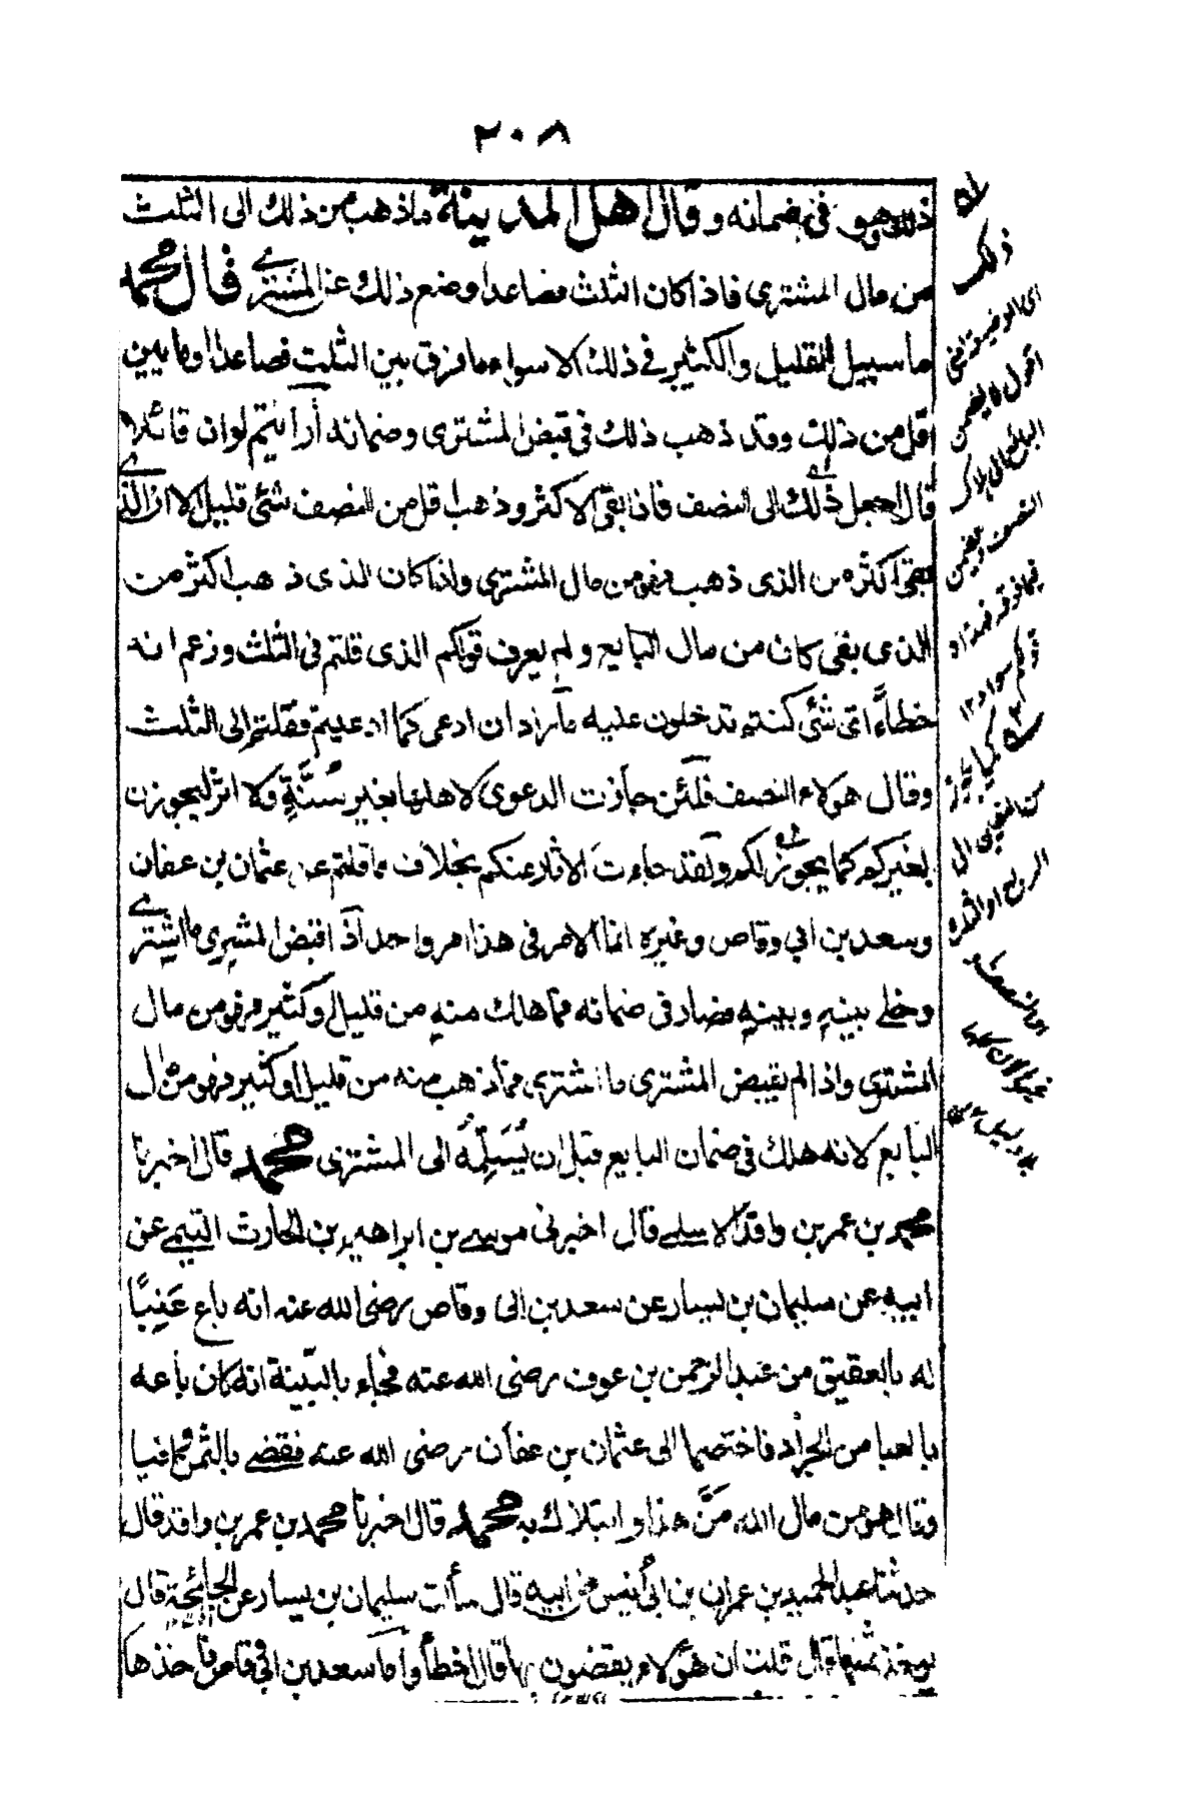 ٢٠٨
ذلك وهو فى ضمانه وقال اهل المدينة ماذهب من ذلك الى الثلث
من مال المشترى فاذا كان الثلث فصاعدا وضع ذلك عن المشترى قال محمد
ما سبيل القليل والكثير فى ذلك الا سواء ما فرق بين الثلث فصاعدا وما بين
اقل من ذلك وقد ذهب ذلك فى قبض المشترى وضمانه أرأيتم لو ان قائلا
قال اجعل ذلك الى النصف فاذا بقى الاكثر وذهب اقل من النصف شئى قليل لان الذى
بقى اكثر من الذى ذهب فهو من مال المشترى واذا كان الذى ذهب اكثر من
الذى بقى كان من مال البايع ولم يعرف قولكم الذى قلتم فى الثلث وزعم انه
خطاء اى شئى كنتم تدخلون عليه ما زاد ان ادعى كما ادعيتم فقلتم الى الثلث
وقال هولاء النصف فلئن جازت الدعوى لاهلها بغير سُنَّةٍ ولا اثر ليجوزن
لغيركم كما يجوز لكم ولقد جاءت الآثار عنكم بخلاف ما قلتم عن عثمان بن عفان
وسعد بن ابي وقاص وغيره انما الامر فى هذا امر واحد اذا قبض المشترى ما اشترى
وخلى بينه وبينه فصار فى ضمانه فما هلك منه من قليل او كثير فهو من مال
المشترى واذا لم يقبض المشترى ما اشترى فما ذهب منه من قليل او كثير فهو من مال
البايع لانه هلك فى ضمان البايع قبل ان يُسَلِّمَهُ الى المشترى محمد قال اخبرنا
محمد بن عمر بن واقد الاسلمى قال اخبرنى موسى بن ابراهيم بن الحارث التيمى عن
ابيه عن سليمان بن يسار عن سعد بن ابى وقاص رضى الله عنه انه باع عنبًا
له بالعقيق من عبد الرحمن بن عوف رضى الله عنه فجاء بالبينة انه كان باعه
من الجراد فاختصما الى عثمان بن عفان رضى الله عنه فقضى بالثمن
وقال هو من مال الله مَنَّ هذا وابتلاك به محمد قال اخبرنا محمد بن عمر بن واقد قال
حدثنا عبد الحميد بن عمران بن ابى أنيس عن ابيه قال سألت سليمان بن يسار عن الجائحة قال
يوخذ بثمنها قال قلت ان هؤلاء يقضون بها قال اخطأوا اما سعد بن ابى وقاص فاخذها
ذلك